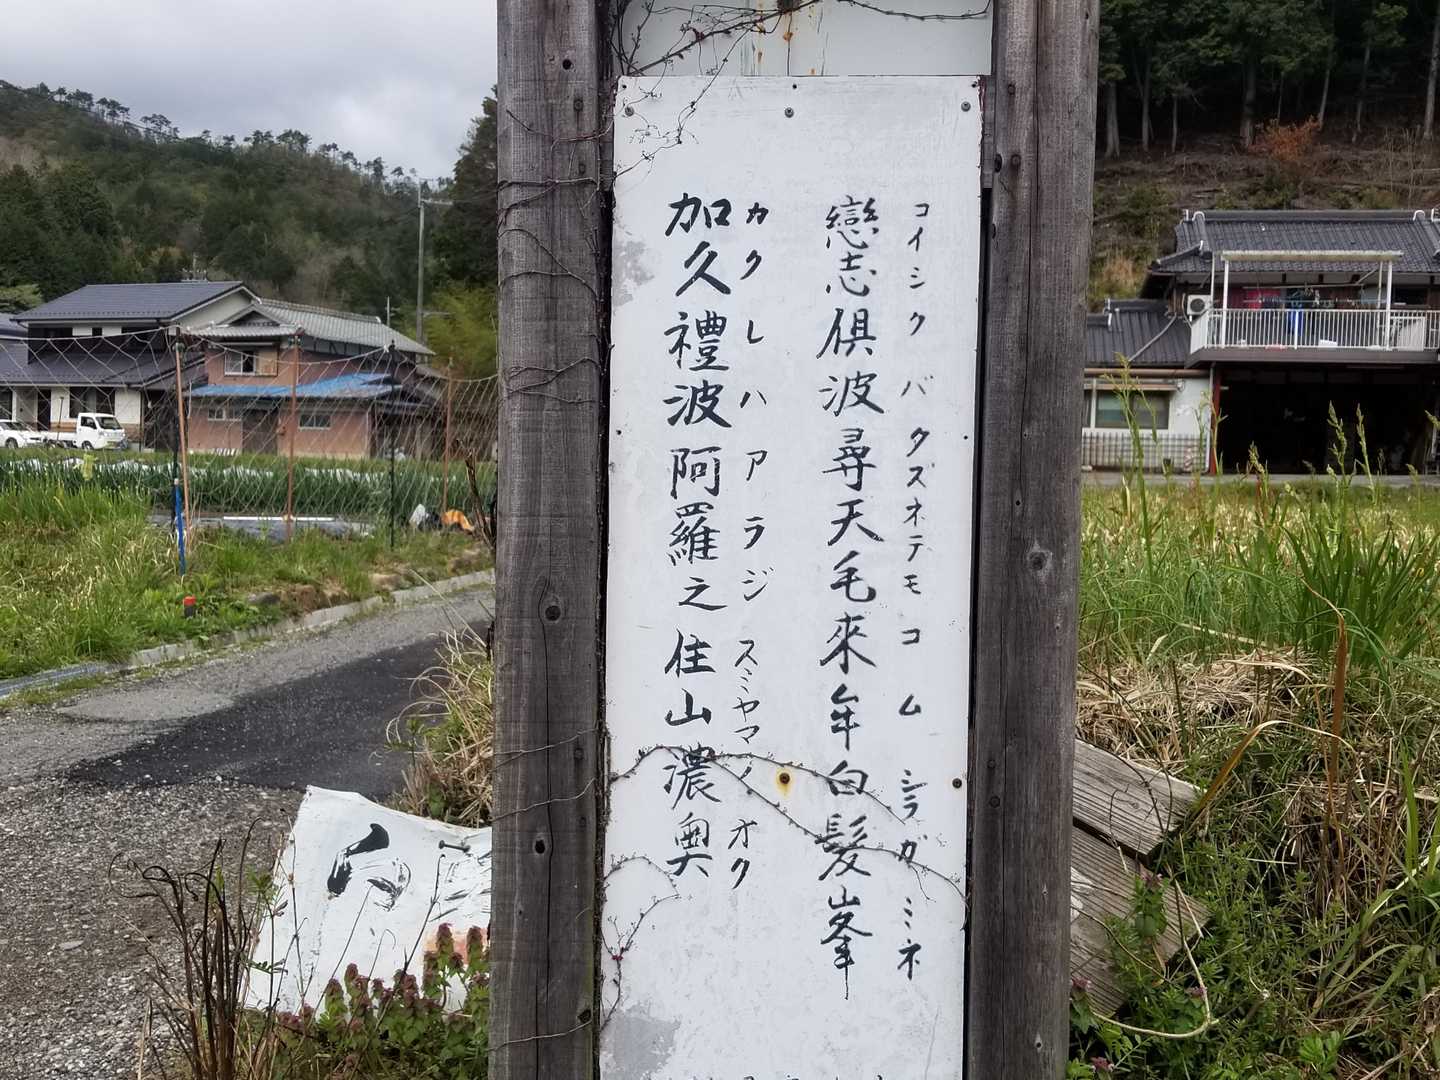 コイシクバタズネテモコムシラガミネ
戀志俱波尋天毛來牟白髮峯
カクレハアラジスミヤマノオク
加久禮波阿羅之住山濃奧